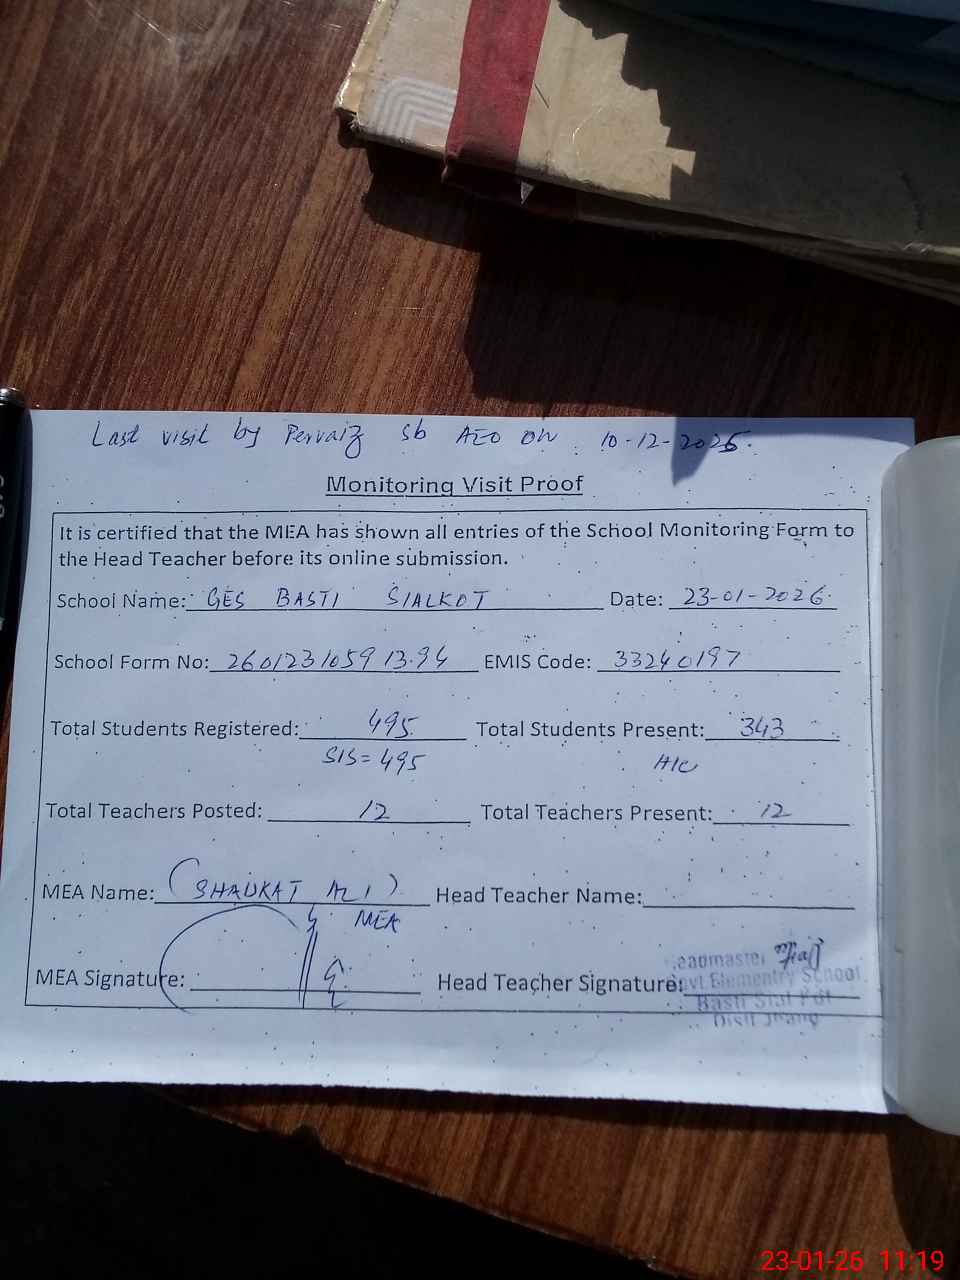 Last visit by Pervaiz sb AEO on 10-12-2025.
Monitoring Visit Proof
It is certified that the MEA has shown all entries of the School Monitoring Form to
the Head Teacher before its online submission.
School Name: GES BASTI SIALKOT Date: 23-01-2026
School Form No: 260123105913.94 EMIS Code: 33240197
Total Students Registered: 495 Total Students Present: 343
SIS=495
Total Teachers Posted: 12 Total Teachers Present: 12
MEA Name: (SHAUKAT ALI) Head Teacher Name:
MEA
MEA Signature: Head Teacher Signature:
eadmaster
vt. Elementry School
Basti Sial
Distt Jhang
23-01-26 11:19